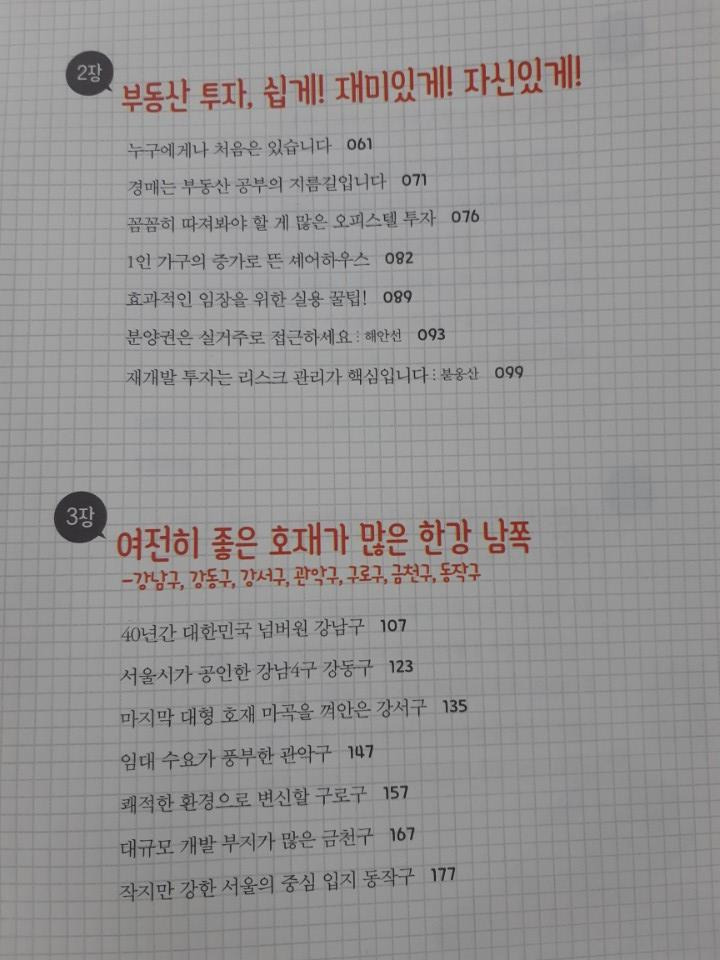 2장
부동산 투자, 쉽게! 재미있게! 자신있게!
누구에게나 처음은 있습니다 061
경매는 부동산 공부의 지름길입니다 071
꼼꼼히 따져봐야 할 게 많은 오피스텔 투자 076
1인 가구의 증가로 뜬 셰어하우스 082
효과적인 임장을 위한 실용 꿀팁! 089
분양권은 실거주로 접근하세요 : 해안선 093
재개발 투자는 리스크 관리가 핵심입니다 : 붇옹산 099
3장
여전히 좋은 호재가 많은 한강 남쪽
-강남구, 강동구, 강서구, 관악구, 구로구, 금천구, 동작구
40년간 대한민국 넘버원 강남구 107
서울시가 공인한 강남4구 강동구 123
마지막 대형 호재 마곡을 껴안은 강서구 135
임대 수요가 풍부한 관악구 147
쾌적한 환경으로 변신할 구로구 157
대규모 개발 부지가 많은 금천구 167
작지만 강한 서울의 중심 입지 동작구 177